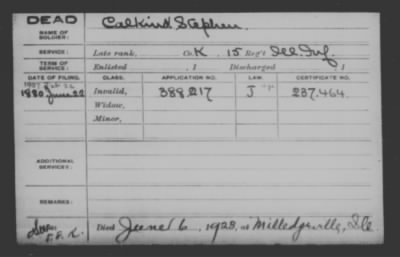 DEAD
NAME OF SOLDIER: Calkins Stephen
SERVICE: Late rank, Co. K. 15 Reg't Ill. Inf.
TERM OF SERVICE: Enlisted , 1 Discharged , 1
DATE OF FILING. CLASS. APPLICATION NO. LAW. CERTIFICATE NO.
1907
1880 June 22 Invalid, 388.217 J 237.464
Widow,
Minor,
ADDITIONAL SERVICES:
REMARKS:
Died June 6, 1928, at Milledgeville, Ill